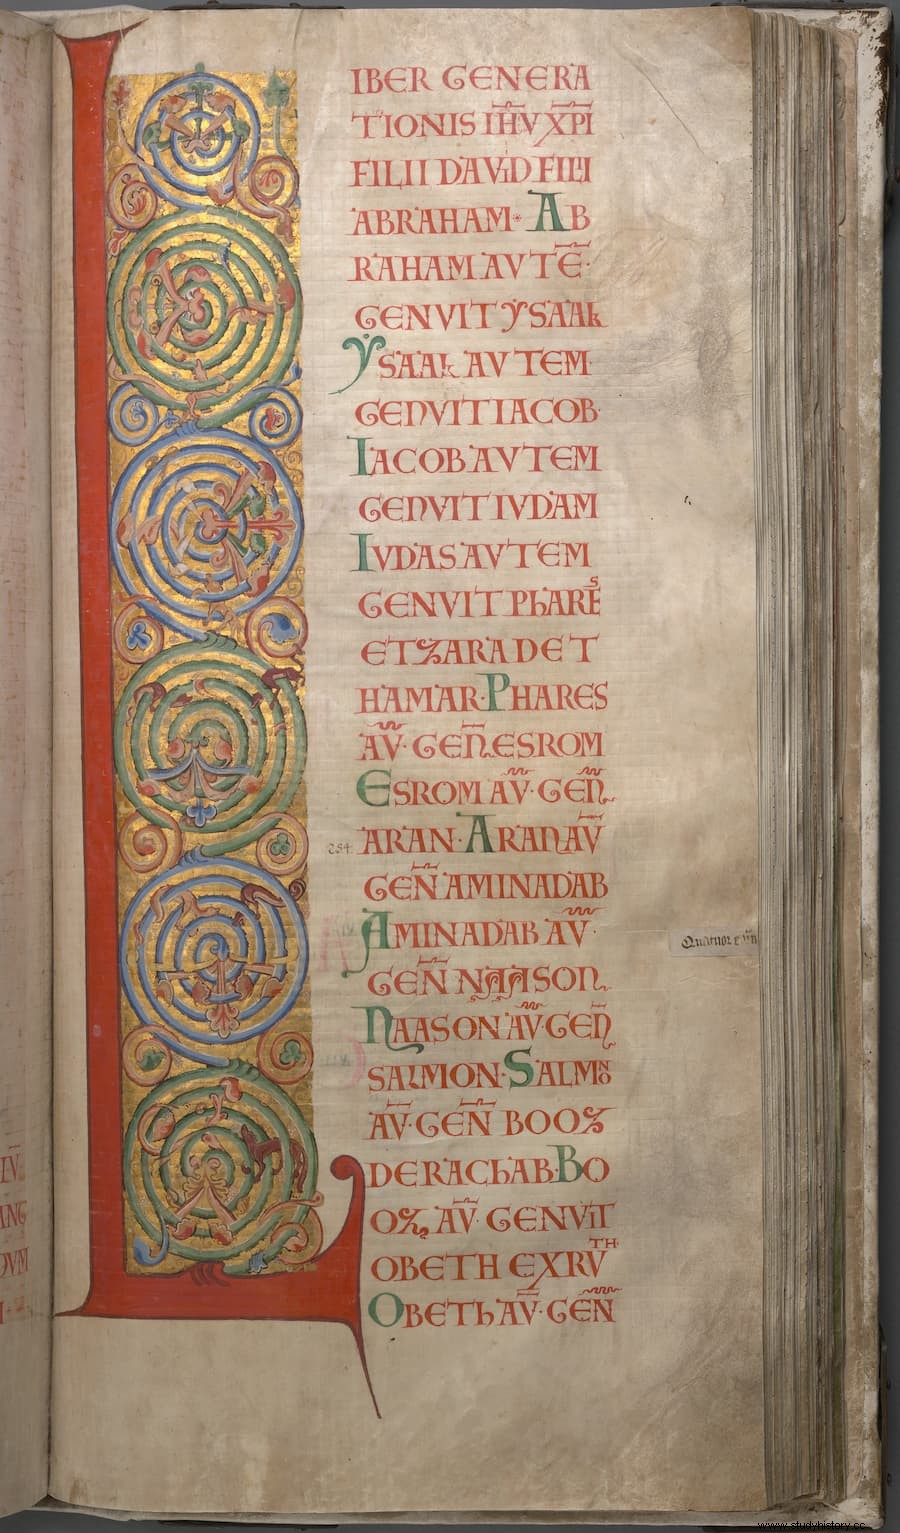 LIBER GENERA
TIONIS IH̅V X̅P̅I
FILII DAVID FILII
ABRAHAM· AB
RAHAM AVTE̅·
GENVIT ẎSAAk
ẎSAAk AVTEM
GENVIT IACOB·
IACOB AVTEM
GENVIT IVDAM
IVDAS AVTEM
GENVIT PhAREˢ
ET ZARAD ET
HAMAR· PHARES
AV̅· GEN̅ ESROM
ESROM AV̅· GEN̅
254· ARAN· ARAN AV̅
GEN̅ AMINADAB
AMINADAB AV̅·
GEN̅ NAASON
NAASON AV̅· GEN̅
SALMON· SALMoN
AV̅· GEN̅ BOOZ
DE RAChAB· BO
OZ, AV̅· GENVIT
OBETH EX RVTH·
OBETh AV̅· GEN̅
Quatuor
IV̅
ANG
DVM
www.studyhistory.cc